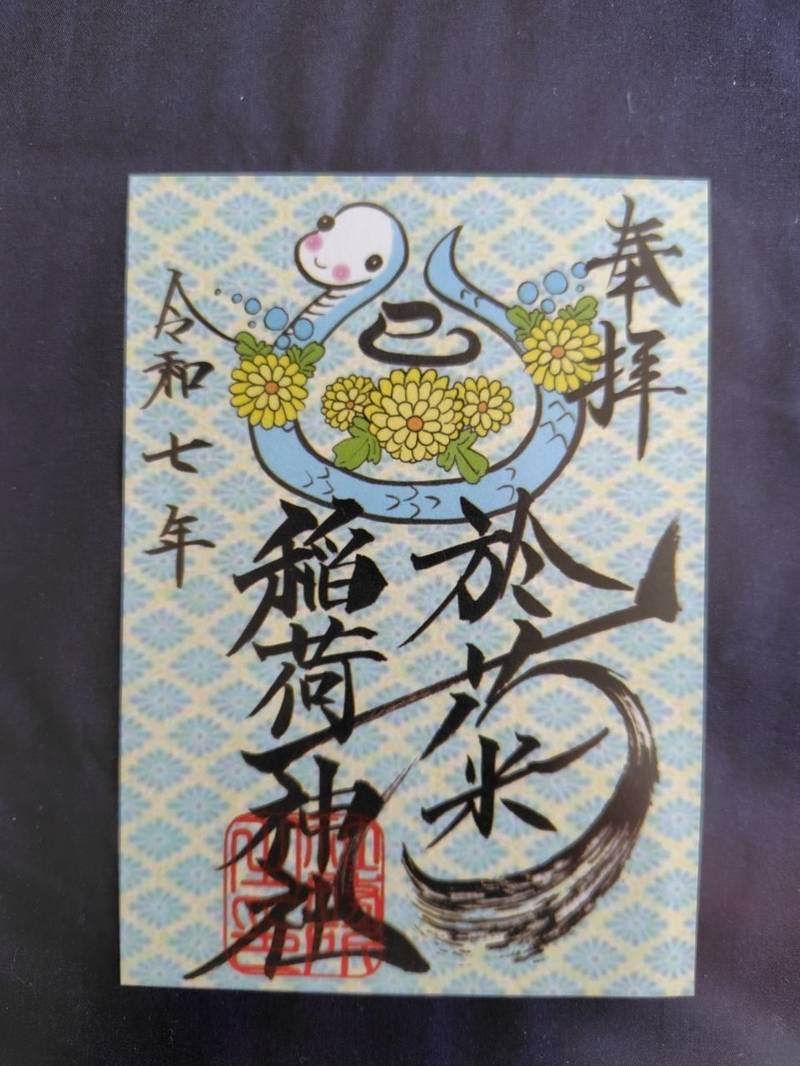 奉拝
巳
於菊
稲荷神社
令和七年